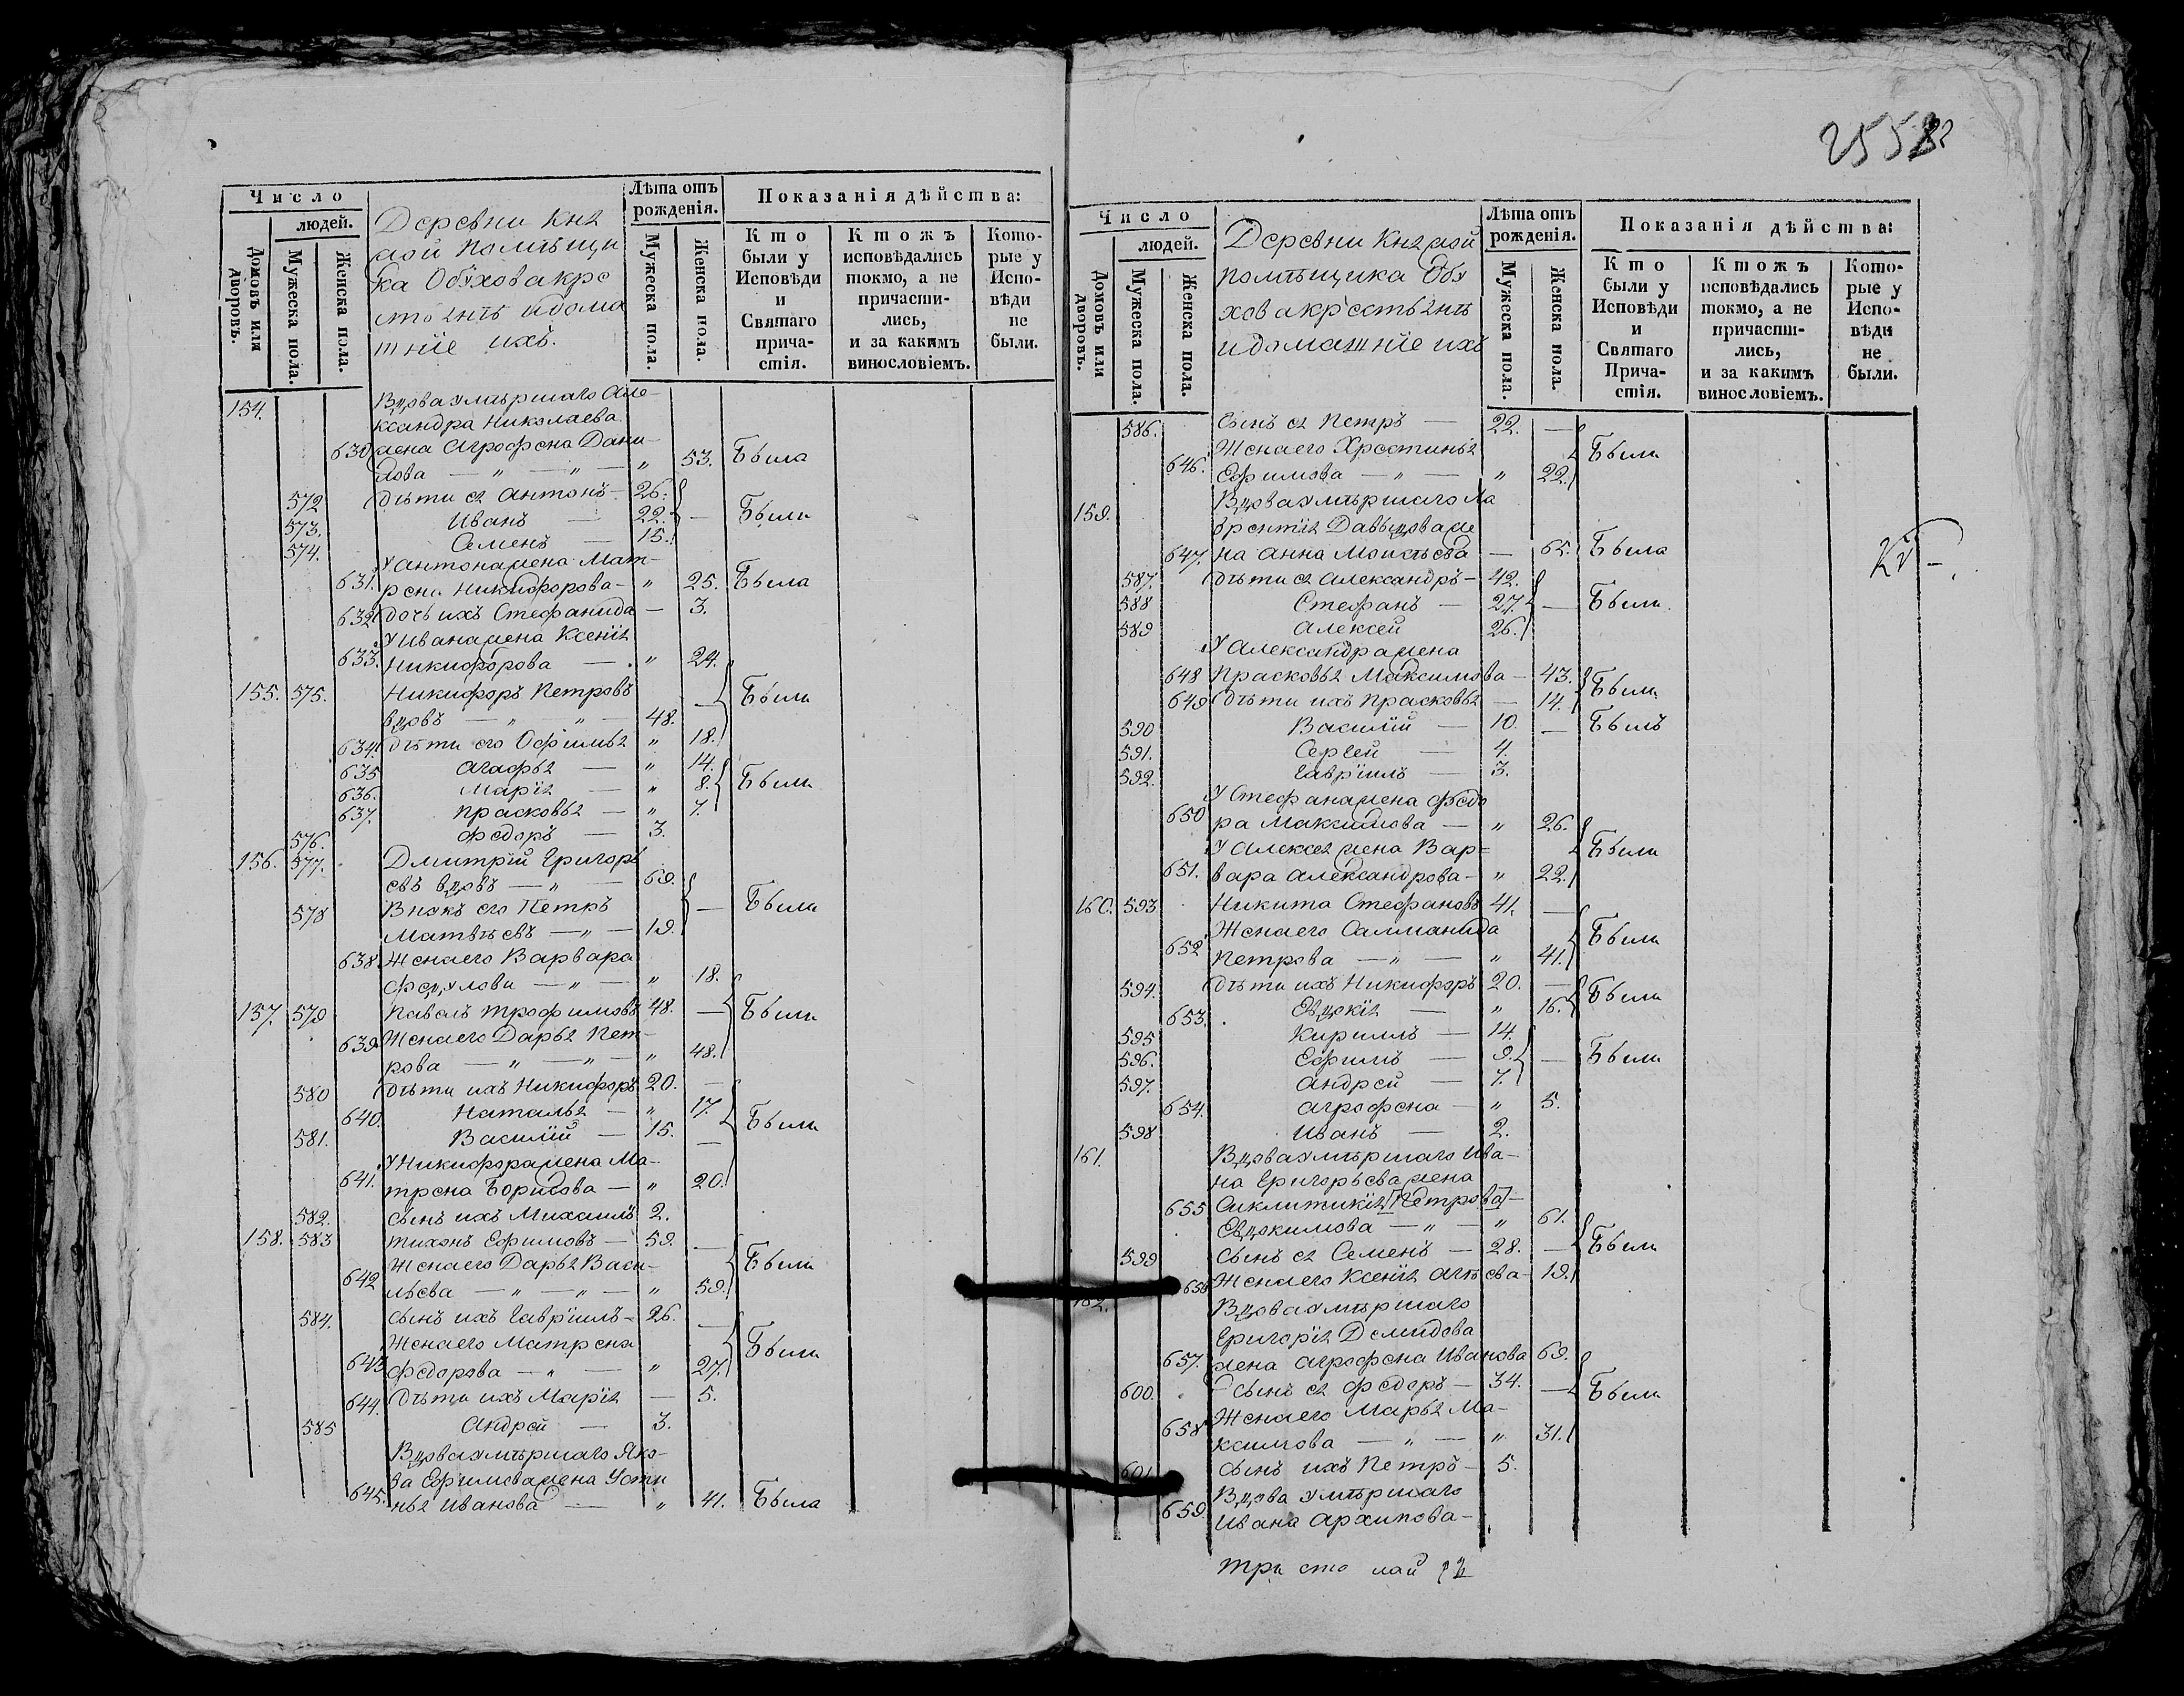 2558
Число
людей.
Домовъ или дворовъ.
Мужеска пола.
Женска пола.
Деревни Кня
жой помѣщи
ка Обухова кре
стьянъ и дома
шніе ихъ.
Лѣта отъ рожденія.
Мужеска пола.
Женска пола.
Показанія дѣйства:
Кто были у Исповѣди и Святаго причастія.
Ктожъ исповѣдались токмо, а не причастились, и за какимъ винословіемъ.
Которые у Исповѣди не были.
154. Вдова умершаго Але-
ксандра Николаева
630 жена Агрофена Дани-
лова — " — " — " 53. Была
572 дѣти ея Антонъ — 26.
573. Иванъ — 22. — Были
574. Семенъ — 15.
У Антона жена Мат-
631. рена Никифорова — " 25. Была
632 дочь ихъ Стефанида — 3.
У Ивана жена Ксенія
633. Никифорова — " 24.
155. 575. Никифоръ Петровъ — Были
вдовъ — " — " — 48.
634. дѣти его Офимья " 18.
635 Агафья — " 14.
636. Марія — " 8. Были
637. Прасковья — " 7.
576. Федоръ — 3.
156. 577. Дмитрій Григорь
евъ вдовъ — " — 69.
578 Внукъ его Петръ — Были
Матвѣевъ — " — 19.
638. Жена его Варвара
Федулова — " — " 18.
157. 579 Павелъ Трофимовъ 48. — Были
639 Жена его Дарья Пет-
рова — " — " — " 48.
580 дѣти ихъ Никифоръ 20. —
640. Наталья — " 17. Были
581. Василій — 15. —
У Никифора жена Ма-
641. трена Борисова — " 20.
582. сынъ ихъ Михаилъ 2.
158. 583 Тихонъ Ефимовъ — 59. —
Жена его Дарья Васи- Были
642 льева — " — " — " 59.
584. сынъ ихъ Гавріилъ — 26. —
Жена его Матрена Были
643 Федорова — " — " 27.
644. Дѣти ихъ Марія — 5.
585 Андрей — 3.
Вдова умѣршаго Яко-
ва Ефимова жена Усти
645. нья Иванова — " 41. Была
Число
людей.
Домовъ или дворовъ.
Мужеска пола.
Женска пола.
Деревни Княжой
помѣщика Обу
хова крестьянъ
и домашніе ихъ
Лѣта отъ рожденія.
Мужеска пола.
Женска пола.
Показанія дѣйства:
Кто были у Исповѣди и Святаго Причастія.
Ктожъ исповѣдались токмо, а не причастились, и за какимъ винословіемъ.
Которые у Исповѣди не были.
586. Сынъ ея Петръ — 22. —
Жена его Хрестинья Были
646. Ефимова — " — " 22.
159. Вдова умѣршаго Ла
врентія Давыдова же
647. на Анна Моисѣева — 65. Была
587. дѣти ея Александръ — 42.
588 Стефанъ — 27. — Были.
589 Алексей 26.
У Александра жена
648 Прасковья Максимова — 43. Были
649 дѣти ихъ Прасковья — 14.
590 Василій — 10. — Былъ
591. Сергей — 4.
592. Гавріилъ — 3.
У Стефана жена Федо
650 ра Максимова — " 26.
У Алексея жена Вар= Были
651. вара Александрова — " 22.
160. 593 Никита Стефановъ 41. —
Жена его Саламанида Были
652 Петрова — " — " 41.
594. дѣти ихъ Никифоръ 20. — Были
653. Евдокія — " 16.
595 Кириллъ — 14.
596. Ефимъ — 9. — Были
597. Андрей — 7.
654. Агрофена — " 5.
598 Иванъ — 2.
161. Вдова умѣршаго Ива-
на Григорьева жена
655 Сиклитикія [Петрова] —
Евдокимова — " — " 61.
599 сынъ ея Семенъ — 28. — Были
656 Жена его Ксенія Агѣева — 19.
162. Вдова умѣршаго
Григорія Демидова
657. жена Агрофена Иванова 69.
600. сынъ ея Федоръ — 34. — Были
Жена его Марья Ма-
658 ксимова — " — " 31.
601 сынъ ихъ Петръ — 5.
Вдова умѣршаго
659. Ивана Архипова —